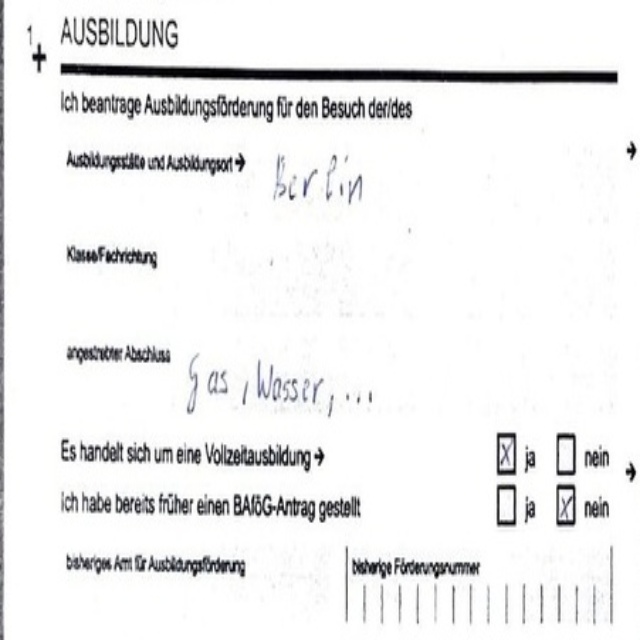 1 AUSBILDUNG
Ich beantrage Ausbildungsförderung für den Besuch der/des
Ausbildungsstätte und Ausbildungsort → Berlin
Klasse/Fachrichtung
angestrebter Abschluss
Gas, Wasser, ...
Es handelt sich um eine Vollzeitausbildung → X ja nein
Ich habe bereits früher einen BAföG-Antrag gestellt ja X nein
bisheriges Amt für Ausbildungsförderung bisherige Förderungsnummer